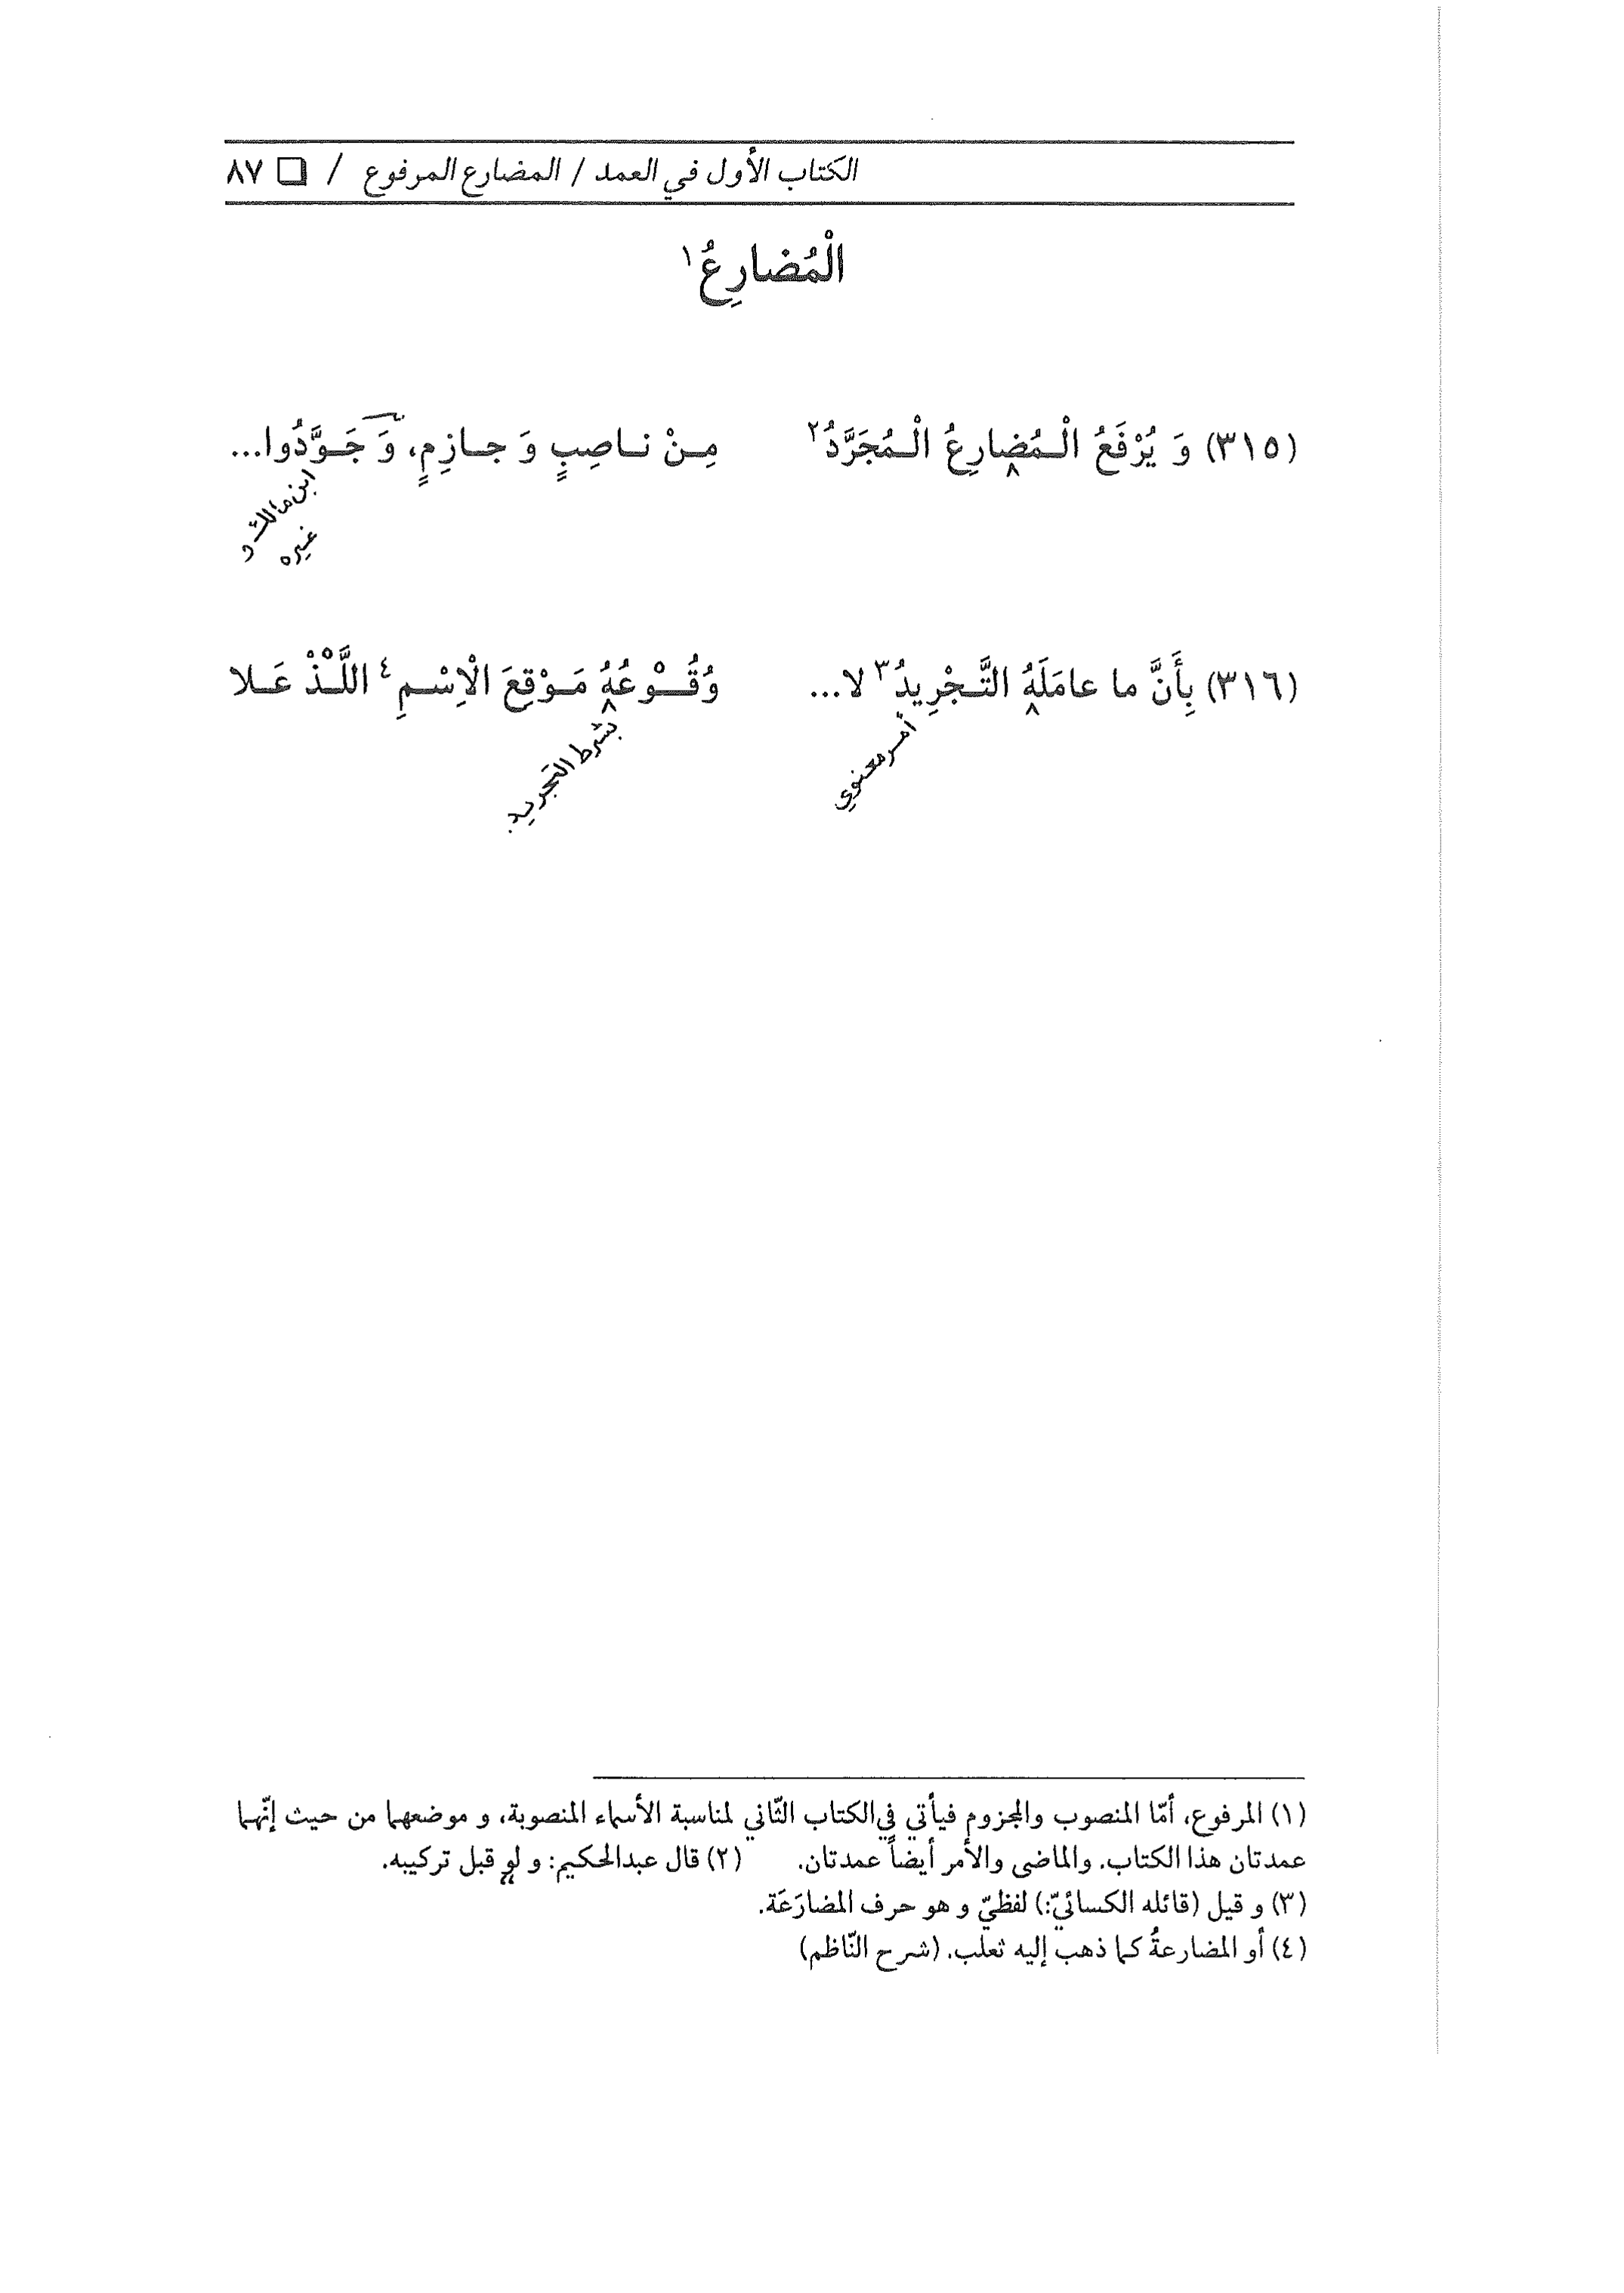 الكتاب الأول في العمد / المضارع المرفوع / ❑ ٨٧
الْمُضارِعُ١
(٣١٥) وَ يُرْفَعُ الْمُضارِعُ الْمُجَرَّدُ٢ مِنْ ناصِبٍ وَ جازِمٍ، وَ جَوَّدُوا...
ابن مالك و
غيره
(٣١٦) بِأَنَّ ما عامَلَهُ التَّجْرِيدُ٣ لا... وُقُوْعُهُ مَوْقِعَ الْاِسْمِ٤ اللَّذْ عَلا
أمر معنوي
بشرط التجريد.
(١) المرفوع، أمّا المنصوب والمجزوم فيأتي في الكتاب الثّاني لمناسبة الأسماء المنصوبة، و موضعهما من حيث إنّهما
عمدتان هذا الكتاب. والماضى والأمر أيضاً عمدتان. (٢) قال عبدالحكيم: و لو قبل تركيبه.
(٣) و قيل (قائله الكسائيّ:) لفظيّ و هو حرف المضارَعَة.
(٤) أو المضارعةُ كما ذهب إليه ثعلب. (شرح النّاظم)